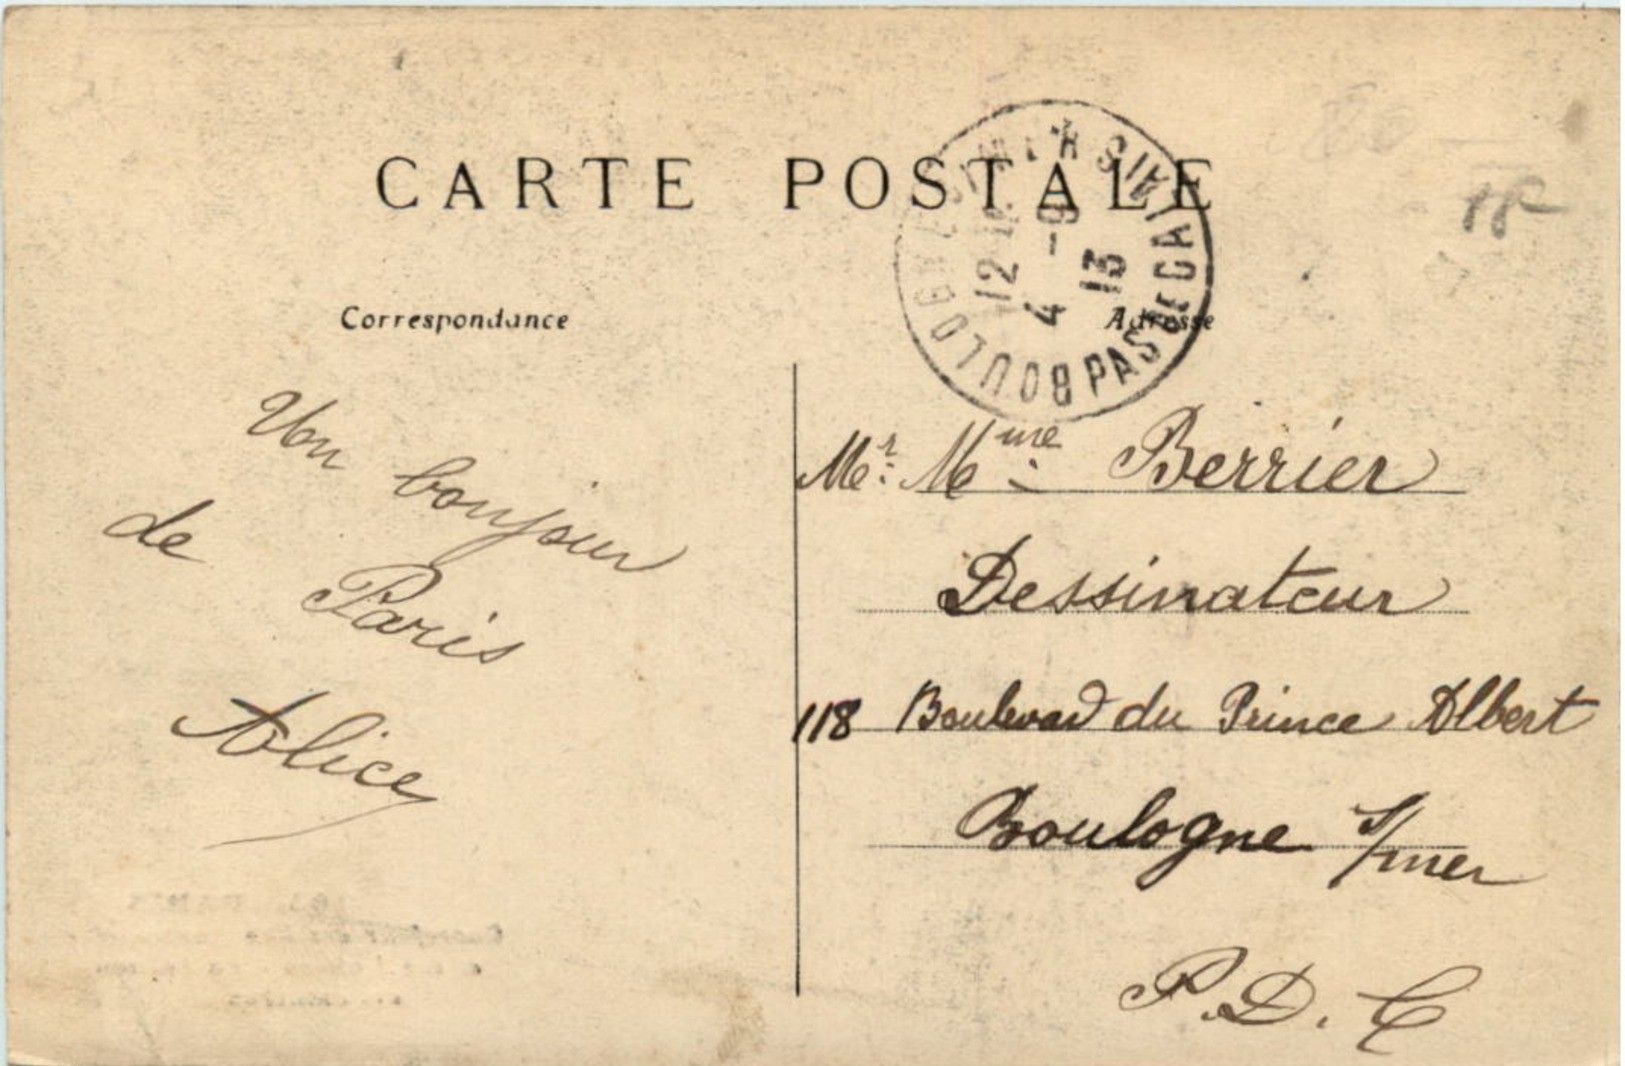 CARTE POSTALE
Correspondance
Adresse
BOULOGNE S/MER PAS DE CALAIS
12
4 -9
13
18
Un bonjour
de Paris
Alice
Mr. Mme Berrier
Dessinateur
118 Boulevard du Prince Albert
Boulogne s/mer
P.D.C